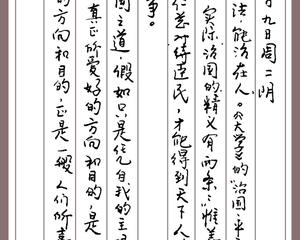 九日周二阴
法，能治在人。《大学》的"治国、平
实际治国的精义有两条："惟善
仁慈对待臣民，才能得到天下人
事。
国之道，假如只是凭自我的主
真正所爱好的方向和目的，是
的方向和目的，正是一般人们所喜